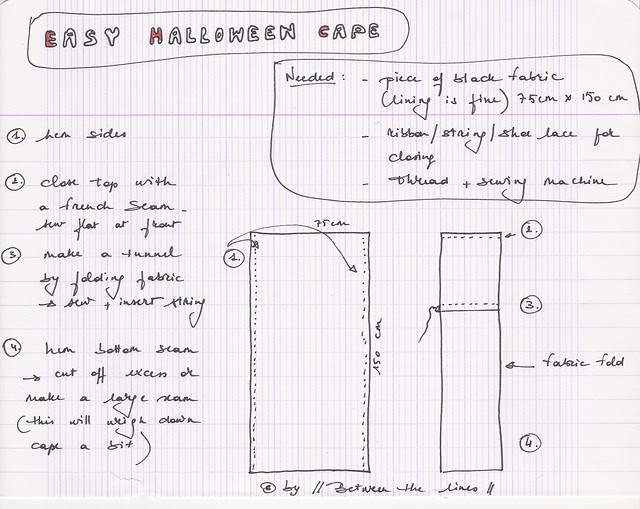 EASY HALLOWEEN CAPE
Needed: - piece of black fabric
(lining is fine) 75cm x 150 cm
- ribbon/string/shoe lace for
closing
- thread + sewing machine
1. hem sides
2. close top with
a french seam -
sew flat at front
3 make a tunnel
by folding fabric
→ sew + insert string
4. hem bottom seam
→ cut off excess or
make a large seam
(this will weigh down
cape a bit)
75cm
1.
150 cm
2.
3.
fabric fold
4.
© by // Between the lines //